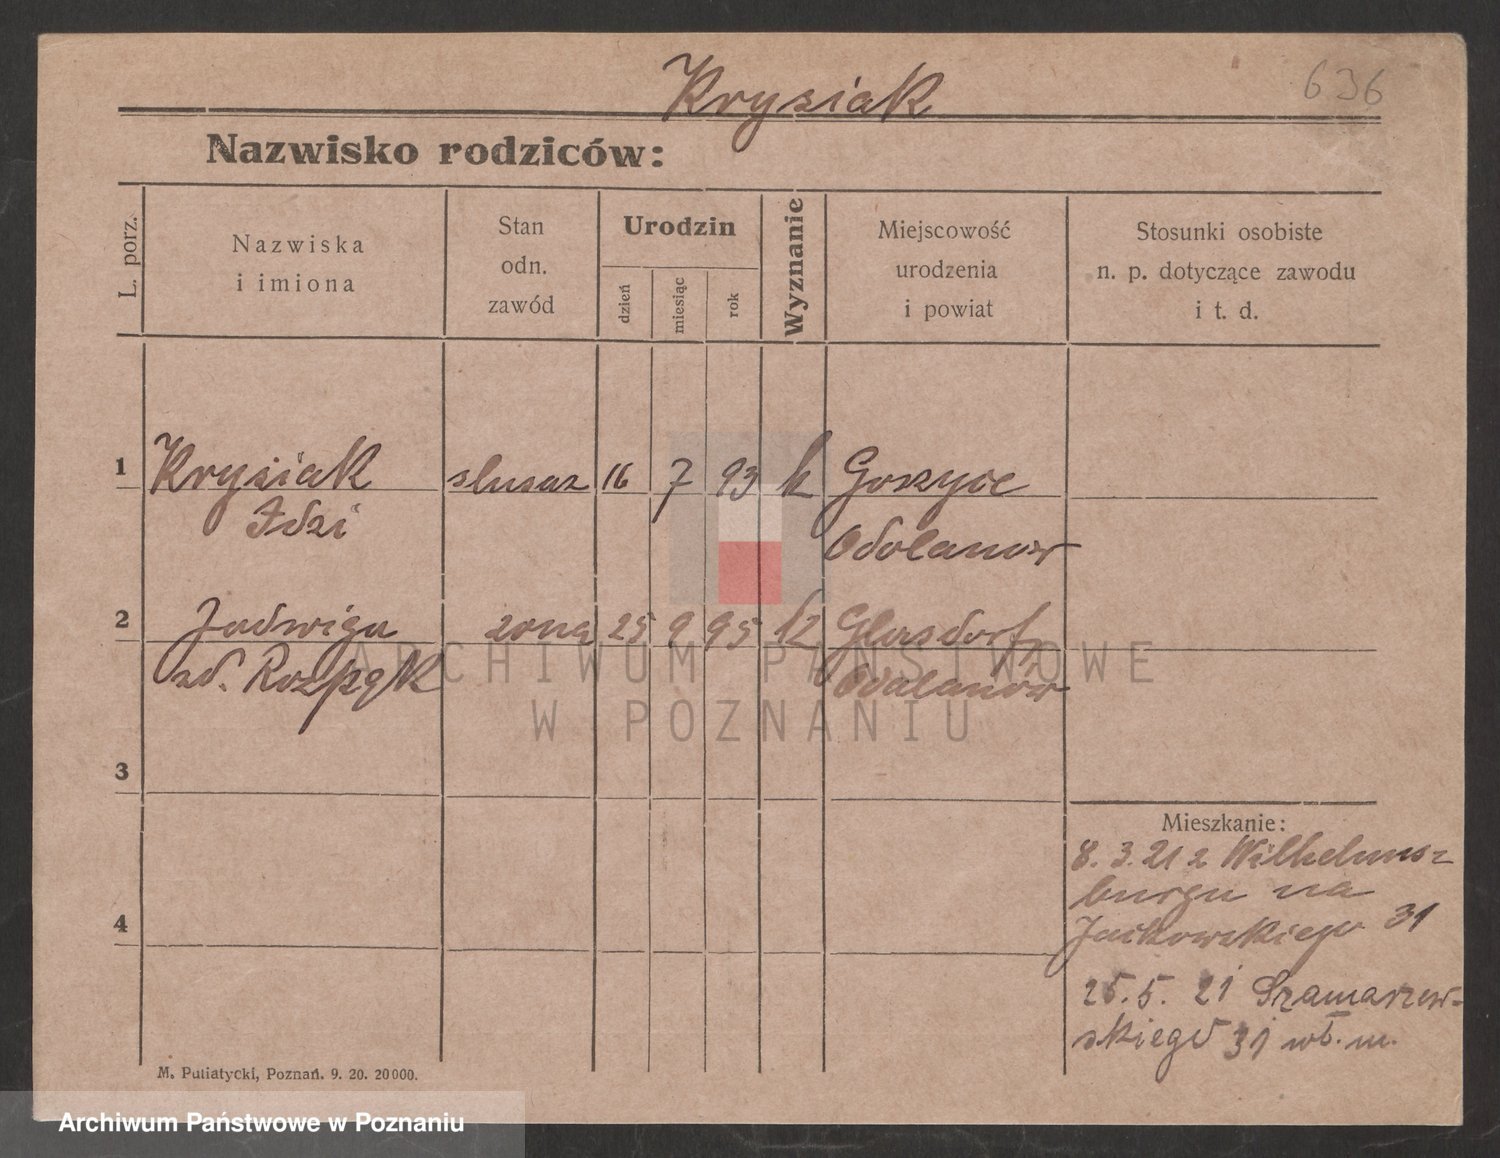 Krysiak
636
Nazwisko rodziców:
L. porz.
Nazwiska
i imiona
Stan
odn.
zawód
Urodzin
dzień
miesiąc
rok
Wyznanie
Miejscowość
urodzenia
i powiat
Stosunki osobiste
n. p. dotyczące zawodu
i t. d.
1 Krysiak ślusaz 16 7 93 k
Idzi Odolanow
2 Jadwiga zona 25 9 95 k Glasdorf,
zd. Rozpęk Odolanow
3
4
Mieszkanie:
8. 3. 21 z Wilhelms-
burgu na
Jackowskiego 31
25. 5. 21 Szamarzew-
skiego 31 wł. m.
M. Putiatycki, Poznań. 9. 20. 20000.
ARCHIWUM PAŃSTWOWE
W POZNANIU
Archiwum Państwowe w Poznaniu